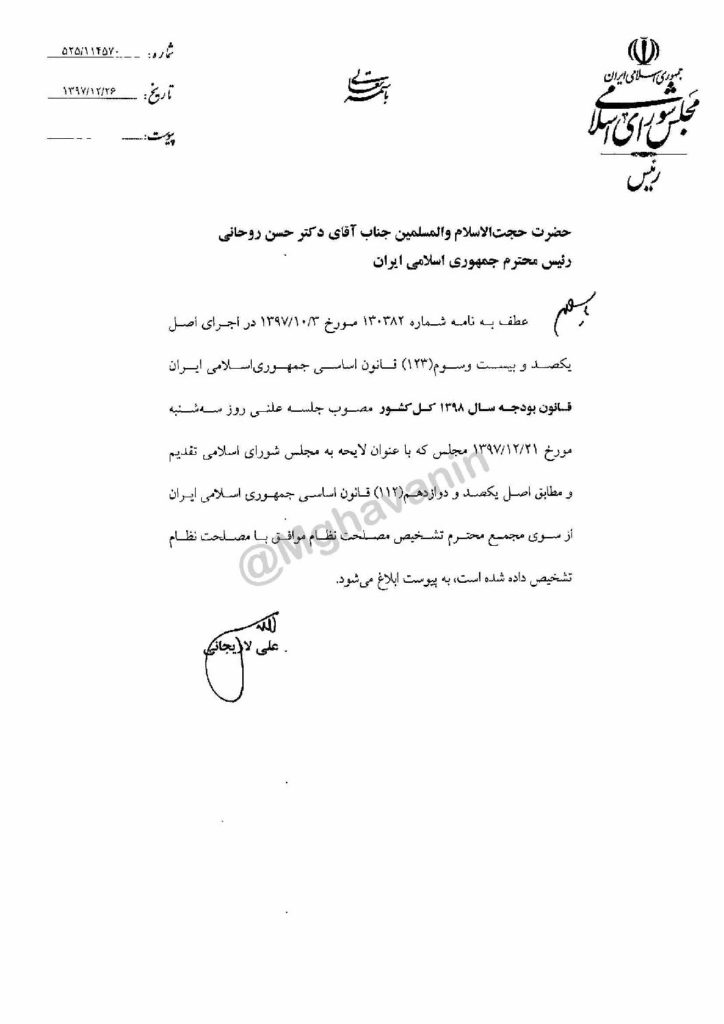 جمهوری اسلامی ایران
مجلس شورای اسلامی
رئیس
باسمه تعالی
شماره: ۵۲۵/۱۱۴۵۷۰
تاریخ: ۱۳۹۷/۱۲/۲۶
پیوست:
حضرت حجت‌الاسلام والمسلمین جناب آقای دکتر حسن روحانی
رئیس محترم جمهوری اسلامی ایران
عطف به نامه شماره ۱۳۰۳۸۲ مورخ ۱۳۹۷/۱۰/۳ در اجرای اصل
یکصد و بیست وسوم(۱۲۳) قانون اساسی جمهوری‌اسلامی ایران
قانون بودجه سال ۱۳۹۸ کل‌کشور مصوب جلسه علنی روز سه‌شنبه
مورخ ۱۳۹۷/۱۲/۲۱ مجلس که با عنوان لایحه به مجلس شورای اسلامی تقدیم
و مطابق اصل یکصد و دوازدهم(۱۱۲) قانون اساسی جمهوری اسلامی ایران
از سوی مجمع محترم تشخیص مصلحت نظام موافق با مصلحت نظام
تشخیص داده شده است، به پیوست ابلاغ می‌شود.
علی لاریجانی
@Mghavanin